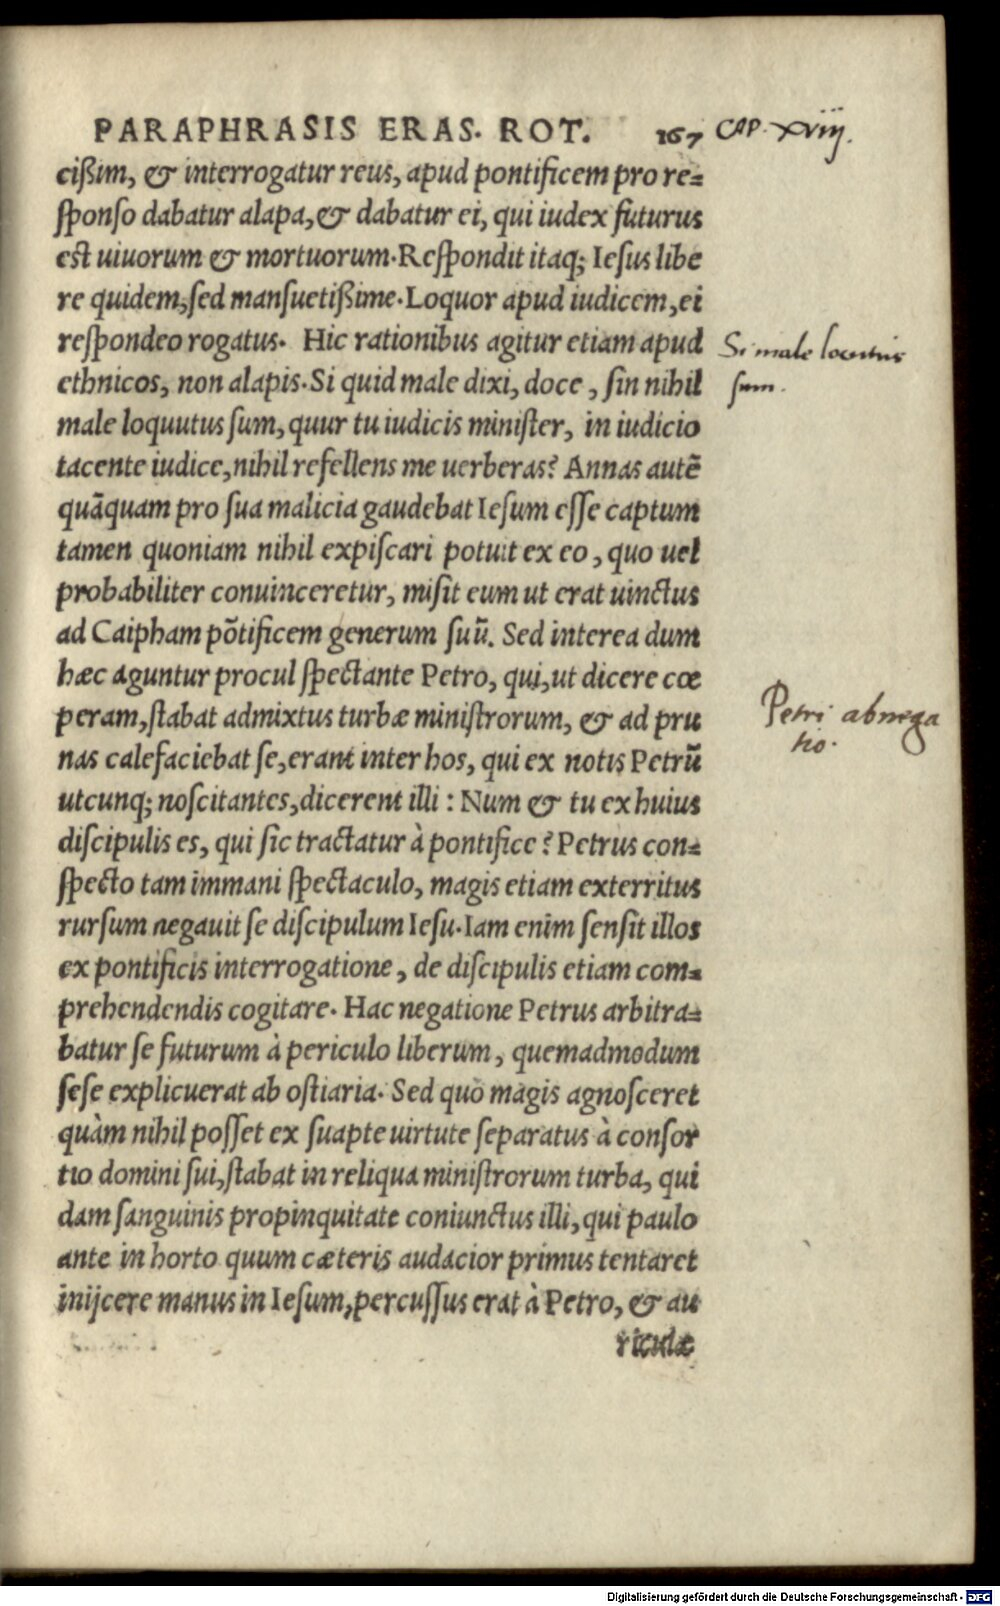 PARAPHRASIS ERAS. ROT. 167 CAP. xviij.
cißim, & interrogatur reus, apud pontificem pro re=
ſponſo dabatur alapa, & dabatur ei, qui iudex futurus
est uiuorum & mortuorum. Reſpondit itaq; Ieſus libe
re quidem, ſed manſuetißime. Loquor apud iudicem, ei
reſpondeo rogatus. Hic rationibus agitur etiam apud
Si male locutus
ethnicos, non alapis. Si quid male dixi, doce, ſin nihil
sum.
male loquutus ſum, quur tu iudicis miniſter, in iudicio
tacente iudice, nihil refellens me uerberas? Annas autē
quāquam pro ſua malicia gaudebat Ieſum eſſe captum
tamen quoniam nihil expiſcari potuit ex eo, quo uel
probabiliter conuinceretur, miſit eum ut erat uinctus
ad Caipham pōtificem generum ſuū. Sed interea dum
hæc aguntur procul ſpectante Petro, qui, ut dicere cœ
peram, ſtabat admixtus turbæ miniſtrorum, & ad pru
Petri abnega
tio.
nas calefaciebat ſe, erant inter hos, qui ex notis Petrū
utcunq; noſcitantes, dicerent illi : Num & tu ex huius
diſcipulis es, qui ſic tractatur à pontifice? Petrus con=
ſpecto tam immani ſpectaculo, magis etiam exterritus
rurſum negauit ſe diſcipulum Ieſu. Iam enim ſenſit illos
ex pontificis interrogatione, de diſcipulis etiam com=
prehendendis cogitare. Hac negatione Petrus arbitra=
batur ſe futurum à periculo liberum, quemadmodum
ſeſe explicuerat ab oſtiaria. Sed quò magis agnoſceret
quàm nihil poſſet ex ſuapte uirtute ſeparatus à conſor
tio domini ſui, ſtabat in reliqua miniſtrorum turba, qui
dam ſanguinis propinquitate coniunctus illi, qui paulo
ante in horto quum cæteris audacior primus tentaret
inijcere manus in Ieſum, percuſſus erat à Petro, & au
riculæ
Digitalisierung gefördert durch die Deutsche Forschungsgemeinschaft - DFG